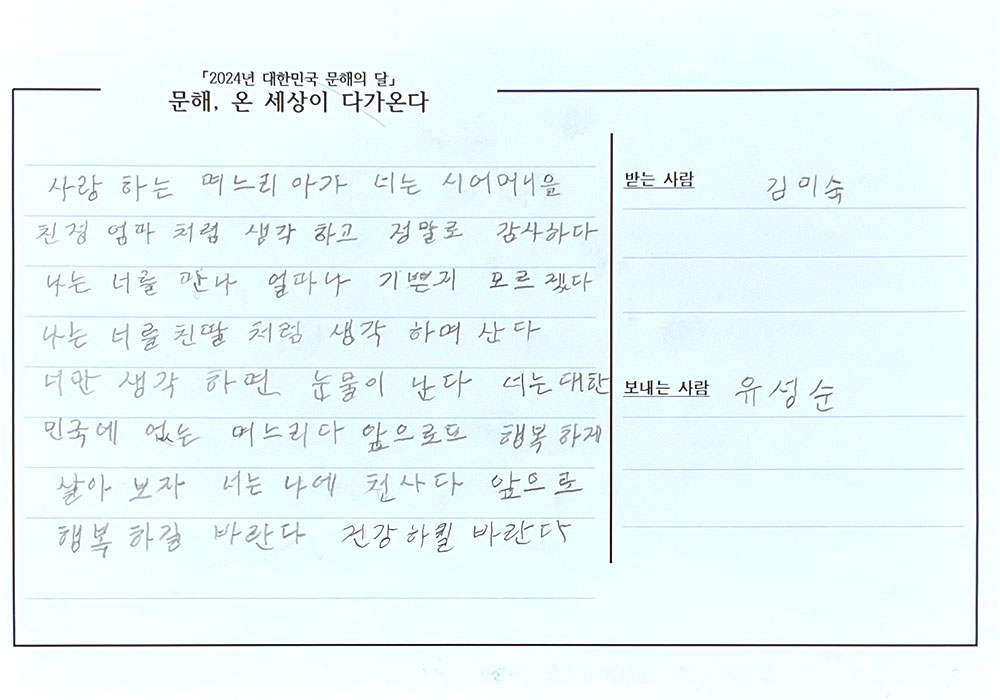 「2024년 대한민국 문해의 달」
문해, 온 세상이 다가온다
사랑 하는 며느리 아가 너는 시어머니을
친정 엄마 처럼 생각 하고 정말로 감사하다
나는 너를 만나 얼마나 기쁜지 모르겠다
나는 너를 친딸 처럼 생각 하며 산다
너만 생각 하면 눈물이 난다 너는 대한
민국에 없는 며느리다 앞으로또 행복 하게
살아 보자 너는 나에 천사다 앞으로
행복 하길 바란다 건강 하킬 바란다
받는 사람 김미숙
보내는 사람 유성순